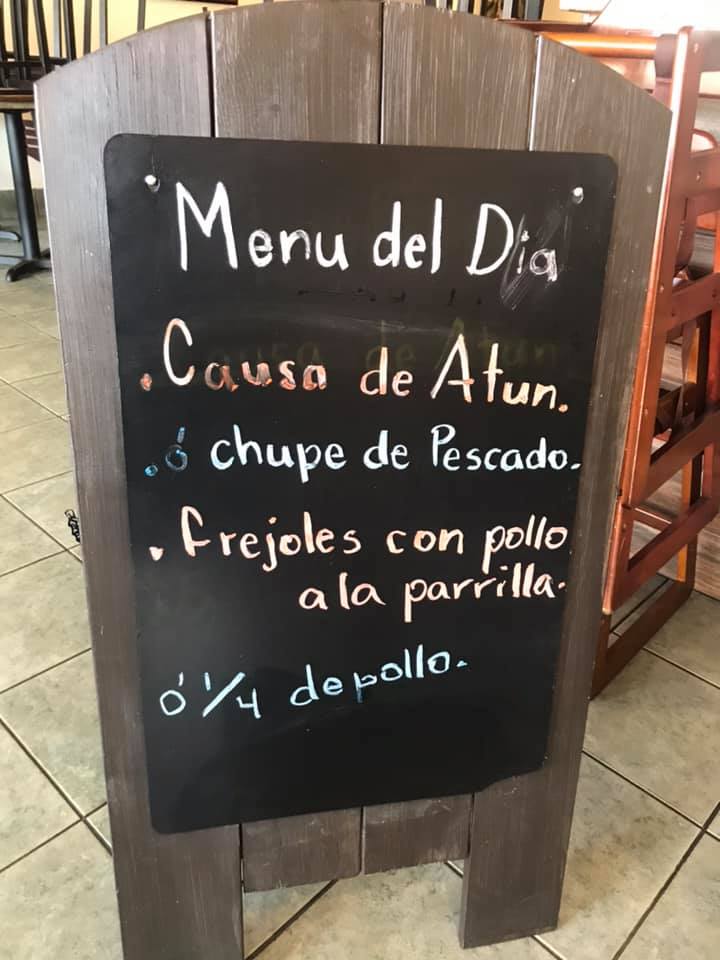 Menu del Dia
. Causa de Atun.
. ó chupe de Pescado.
. frejoles con pollo
a la parrilla.
ó 1/4 de pollo.